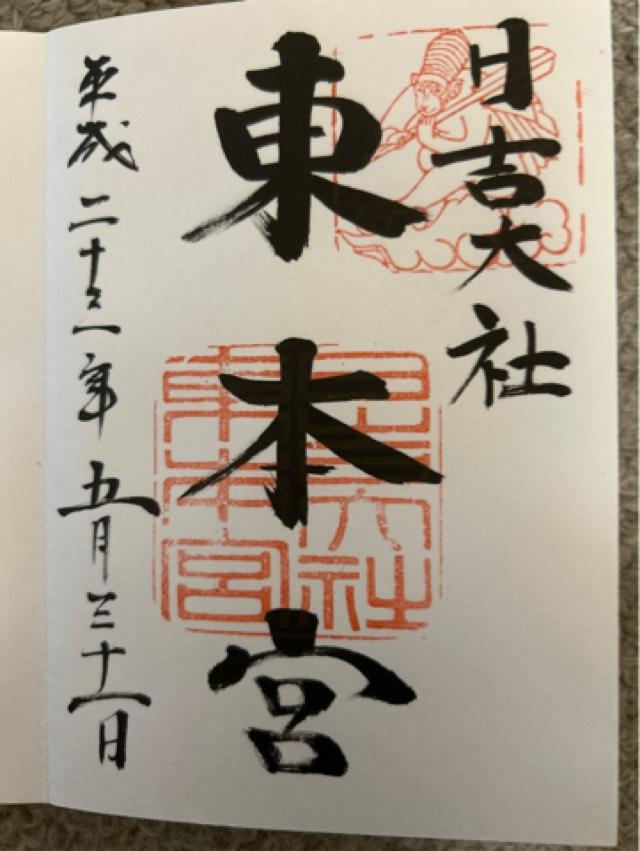 日吉大社
東本宮
平成二十三年五月三十一日
日吉大社
東本宮